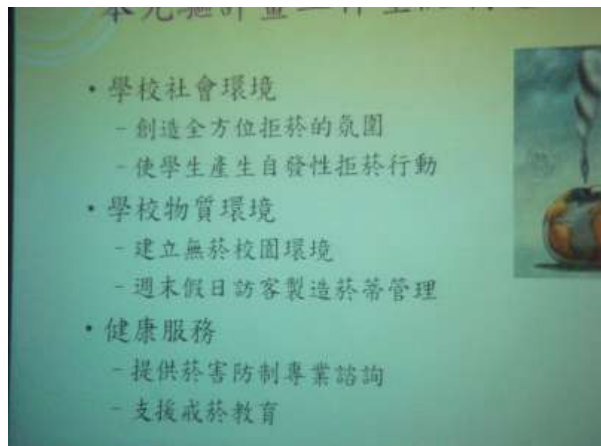 ・學校社會環境
－創造全方位拒菸的氛圍
－使學生產生自發性拒菸行動
・學校物質環境
－建立無菸校園環境
－週末假日訪客製造菸蒂管理
・健康服務
－提供菸害防制專業諮詢
－支援戒菸教育